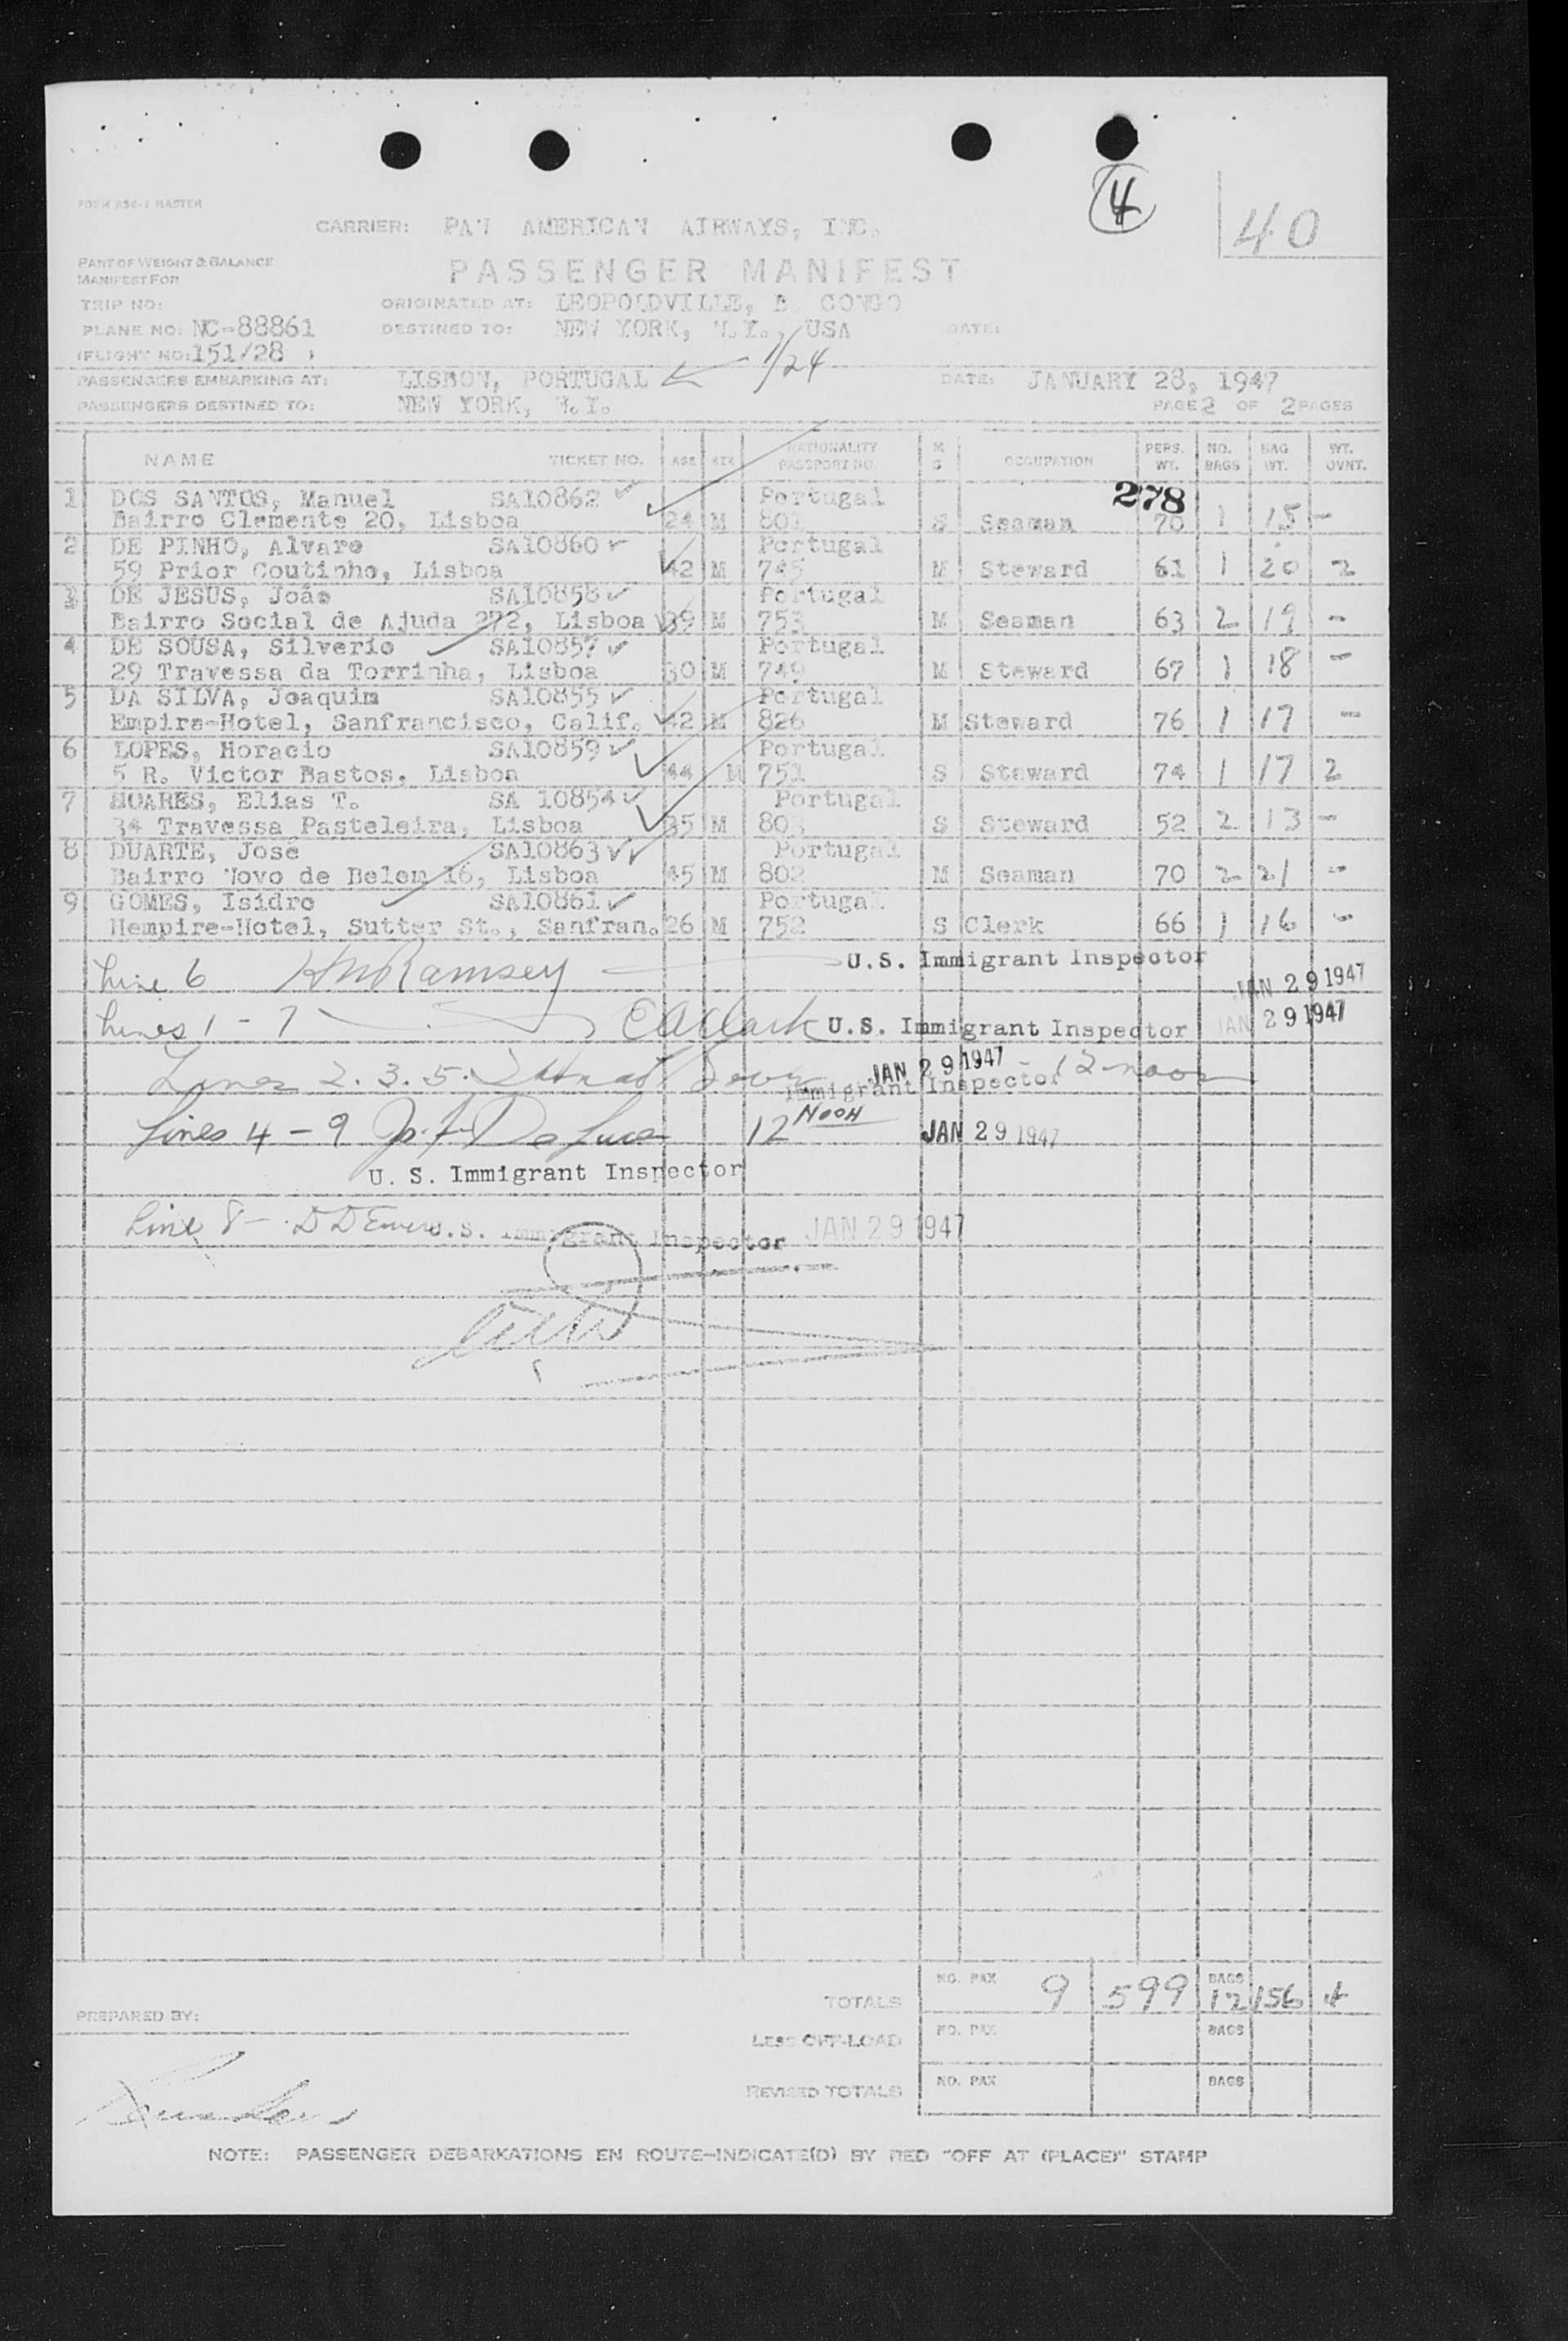 4
40
FORM
MASTER
CARRIER: PAN AMERICAN AIRWAYS, INC.
PART OF WEIGHT & BALANCE
MANIFEST FOR
PASSENGER MANIFEST
TRIP NO:
ORIGINATED AT: LEOPOLDVILLE, B. CONGO
PLANE NO: NC-88861
DESTINED TO: NEW YORK, N.Y., USA
DATE:
(FLIGHT NO: 151/28 )
1/24
PASSENGERS EMBARKING AT: LISBON, PORTUGAL
DATE: JANUARY 28, 1947
PASSENGERS DESTINED TO: NEW YORK, N.Y.
PAGE 2 OF 2 PAGES
NAME TICKET NO. AGE SEX NATIONALITY PASSPORT NO. M S OCCUPATION PERS. WT. NO. BAGS BAG WT. WT. OVNT.
278
1 DOS SANTOS, Manuel SA10862 Portugal
Bairro Clemente 20, Lisboa 24 M 801 S Seaman 70 1 15 -
2 DE PINHO, Alvaro SA10860 Portugal
59 Prior Coutinho, Lisboa 42 M 745 M Steward 61 1 20 2
3 DE JESUS, João SA10858 Portugal
Bairro Social de Ajuda 272, Lisboa 39 M 753 M Seaman 63 2 19 -
4 DE SOUSA, Silverio SA10857 Portugal
29 Travessa da Torrinha, Lisboa 30 M 749 M Steward 67 1 18 -
5 DA SILVA, Joaquim SA10855 Portugal
Empire-Hotel, Sanfrancisco, Calif. 42 M 826 M Steward 76 1 17 -
6 LOPES, Horacio SA10859 Portugal
5 R. Victor Bastos, Lisboa 44 M 751 S Steward 74 1 17 2
7 SOARES, Elias T. SA 10854 Portugal
34 Travessa Pasteleira, Lisboa 35 M 803 S Steward 52 2 13 -
8 DUARTE, José SA10863 Portugal
Bairro Novo de Belem 16, Lisboa 45 M 802 M Seaman 70 2 21 -
9 GOMES, Isidro SA10861 Portugal
Hempire-Hotel, Sutter St., Sanfran. 26 M 752 S Clerk 66 1 16 -
Line 6 HM Ramsey U.S. Immigrant Inspector JAN 29 1947
Lines 1 - 7 EA Clark U.S. Immigrant Inspector JAN 29 1947
Lines 2. 3. 5. JAN 29 1947 - 12 noon
Immigrant Inspector
Lines 4 - 9 12 NOON JAN 29 1947
U. S. Immigrant Inspector
Line 8 - U.S. Immigrant Inspector JAN 29 1947
TOTALS NO. PAX 9 599 BAGS 12 156 4
PREPARED BY:
LESS OFF-LOAD NO. PAX BAGS
REVISED TOTALS NO. PAX BAGS
NOTE: PASSENGER DEBARKATIONS EN ROUTE-INDICATE(D) BY RED "OFF AT (PLACE)" STAMP